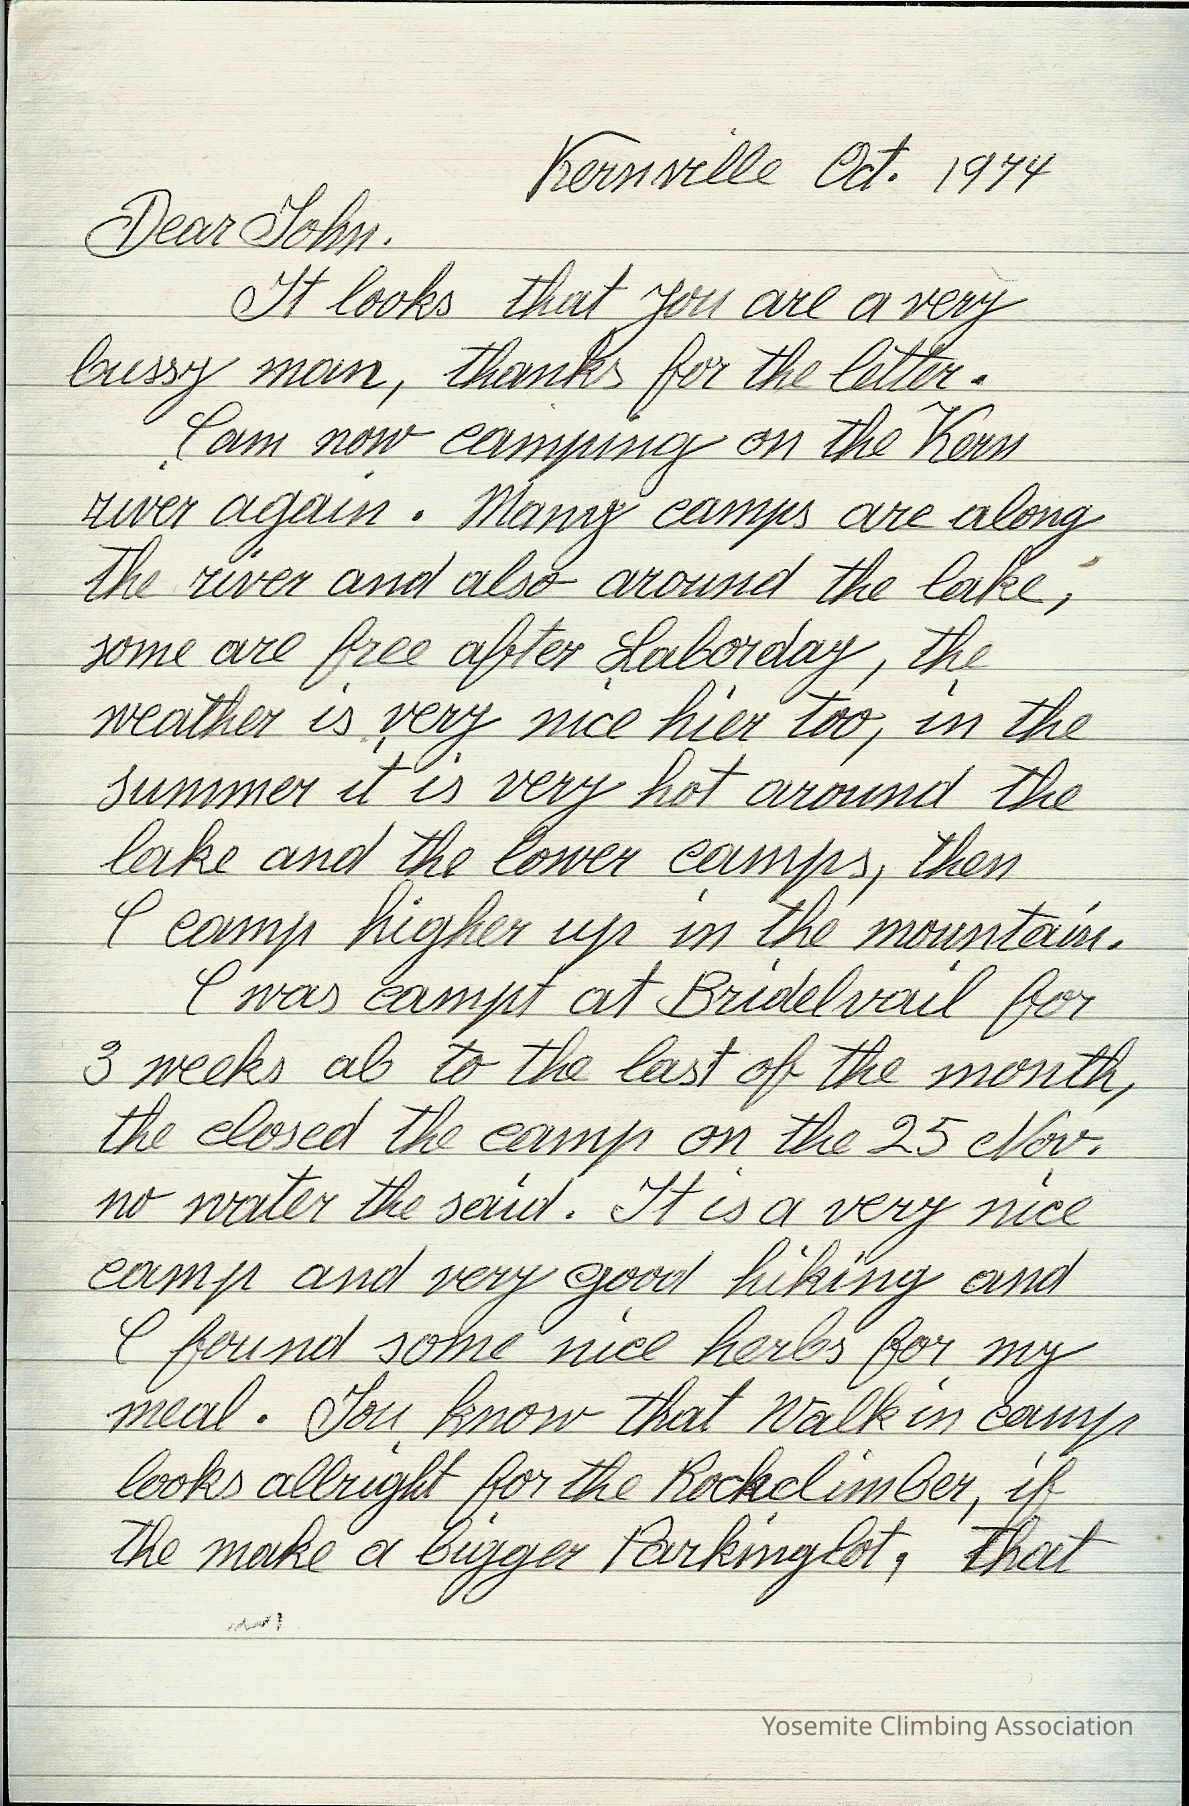 Kernville Oct. 1974
Dear John.
It looks that you are a very
bussy man, thanks for the letter.
I am now camping on the Kern
river again. Many camps are along
the river and also around the lake,
some are free after Laborday, the
weather is very nice hier too, in the
summer it is very hot around the
lake and the lower camps, then
I camp higher up in the mountain.
I was campt at Bridelvail for
3 weeks ab to the last of the month,
the closed the camp on the 25 Nov.
no water the said. It is a very nice
camp and very good hiking and
I found some nice herbs for my
meal. You know that Walk in camp
looks allright for the Rockclimber, if
the make a bigger Parkinglot, that
Yosemite Climbing Association